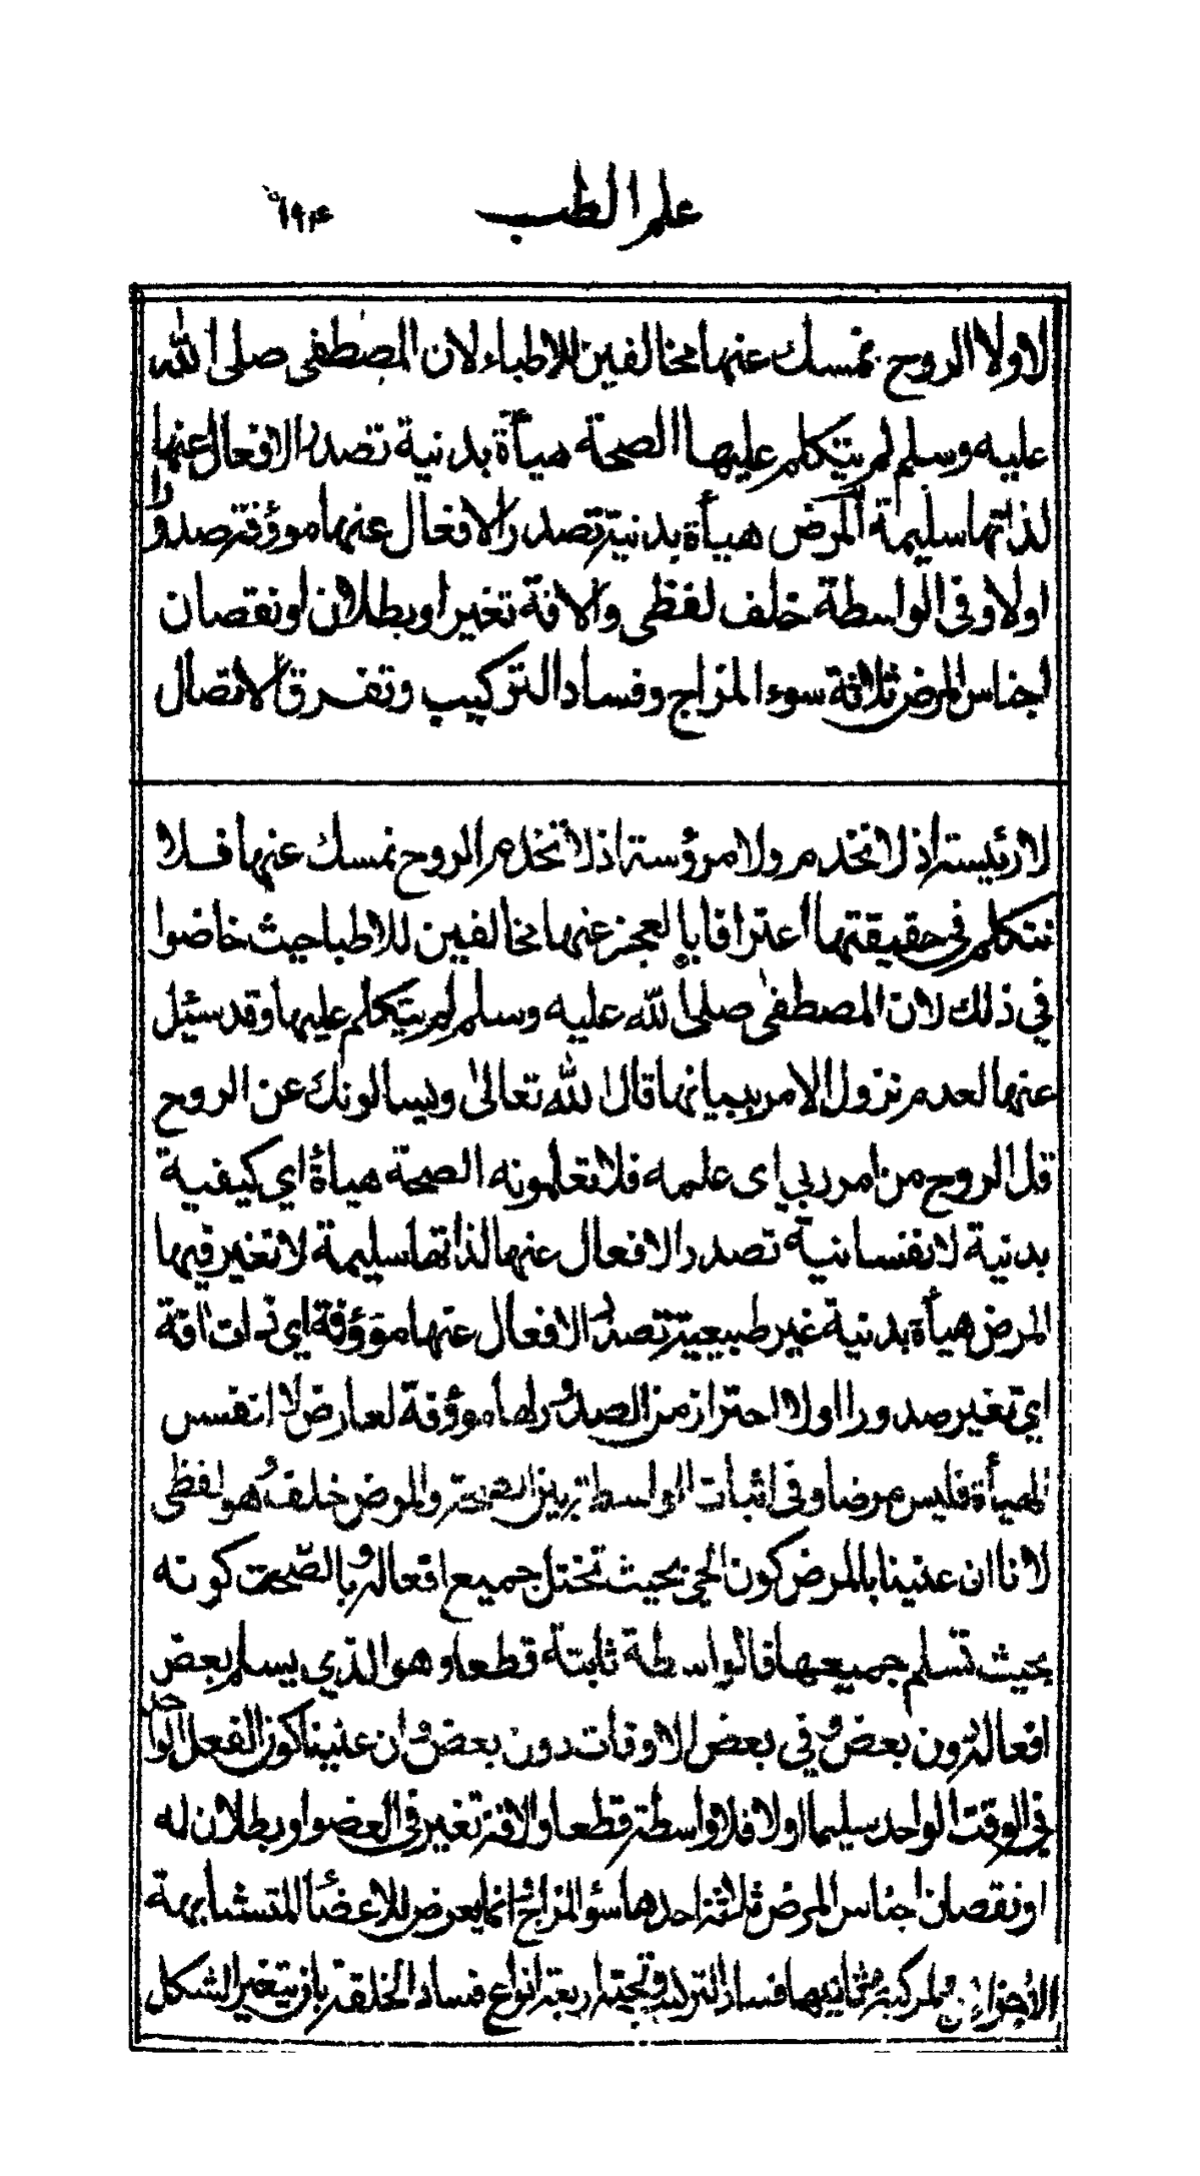 علم الطب
لا ولا الروح نمسك عنها مخالفين للاطباء لان المصطفى صلى الله
عليه وسلم لم يتكلم عليها الصحة هيأة بدنية تصدر الافعال عنها
لذاتها سليمة المرض هيأة بدنية تصدر الافعال عنها موؤفة صدورا
اولا وفى الواسطة خلف لفظى والافة تغير او بطلان او نقصان
اجناس المرض ثلاثة سوء المزاج وفساد التركيب وتفرق الاتصال
لا رئيسة اذ لا تخدم ولا مرؤسة اذ لا تخدم الروح نمسك عنها فلا
نتكلم فى حقيقتها اعترافا بالعجز عنها مخالفين للاطبا حيث خاضوا
في ذلك لان المصطفى صلى الله عليه وسلم لم يتكلم عليها وقد سئل
عنها لعدم نزول الامر ببيانها قال الله تعالى ويسالونك عن الروح
قل الروح من امر ربي اى علمه فلا تعلمونه الصحة هيأة اي كيفية
بدنية لا نفسانية تصدر الافعال عنها لذاتها سليمة لا تغير فيها
المرض هيأة بدنية غير طبيعية تصدر الافعال عنها موؤفة اي ذات افة
اي تغير صدورا اولا احتراز من الصدور لها موؤفة لعارض لا لنفس
الهيأة فليس مرضا وفى اثبات الواسطة بين الصحة والمرض خلف هو لفظى
لانا ان عنينا بالمرض كون الحي بحيث تختل جميع افعاله وبالصحة كونه
بحيث تسلم جميعها فالواسطة ثابتة قطعا وهو الذي يسلم بعض
افعاله دون بعض وفي بعض الاوقات دون بعض وان عنينا كون الفعل الواحد
في الوقت الواحد سليما اولا فلا واسطة قطعا والافة تغير فى العضو او بطلان له
او نقصان اجناس المرض ثلاثة احدها سؤ المزاج انما يعرض للاعضا المتشابهة
الاجزا المركبة وثانيها فساد التركيب وتحته اربعة انواع فساد الخلقة بان يتغير الشكل